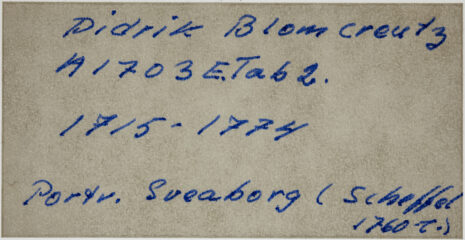 Didrik Blomcreutz
A1703 E.Tab 2.
1715-1774
Portr. Sveaborg (Scheffel
1760-t.)